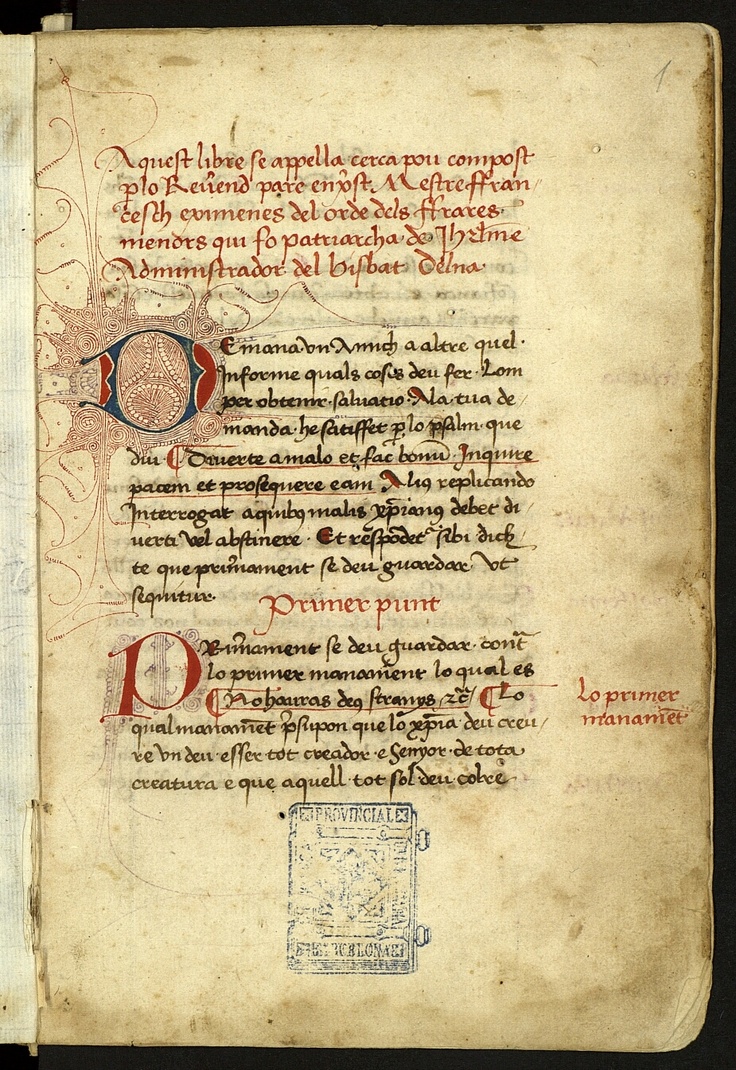 1
Aquest libre se appella cercapou compost
p̱lo Reuēnd pare en xp̄st Mestre ffran-
cesch eximenes del orde dels ffrares
menors qui fo patriarcha de Jhrl̄me
Administrador del bisbat Delna
DEmana vn Amich a altre quel
Informe quals coses deu fer Lom
per obtenir saluatio Ala tua de
manda he satisffet p̱ lo psalm que
diu Diuerte a malo et fac bonū Inquire
pacem et prosequere eam Aliꝰ replicando
Interrogat a quibꝰ malis xp̄ianꝰ debet di
uerti vel abstinere Et respōdet sibi dick
te que primament se deu guardar vt
sequitur
Primer punt
PRimament se deu guardar cont͂
lo primer manament lo qual es
No honraras deꝰ stranys ⁊c̄ Lo
qual manamēt p̄supon que lo xp̄ia deu creu-
re vn deu esser tot creador e Senyor de tota
creatura e que aquell tot sol deu cobre
Lo primer
manamēt
PROVINCIAL
BARCELONA